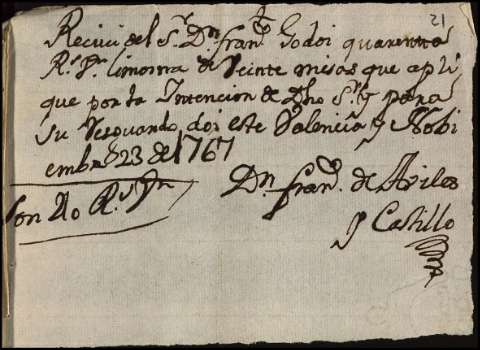 21
Recivi del Sr. Dn. Franco. Godoi quarenta
Rs. Pr. limosna de Veinte misas que apli
que por la Intencion de Dho Sr. y para
su Resguardo, doi este Valencia y Nobi
embre 23 de 1767
Son 40 Rs. Pr.
Dn. Franco. de Aviles
y Castillo